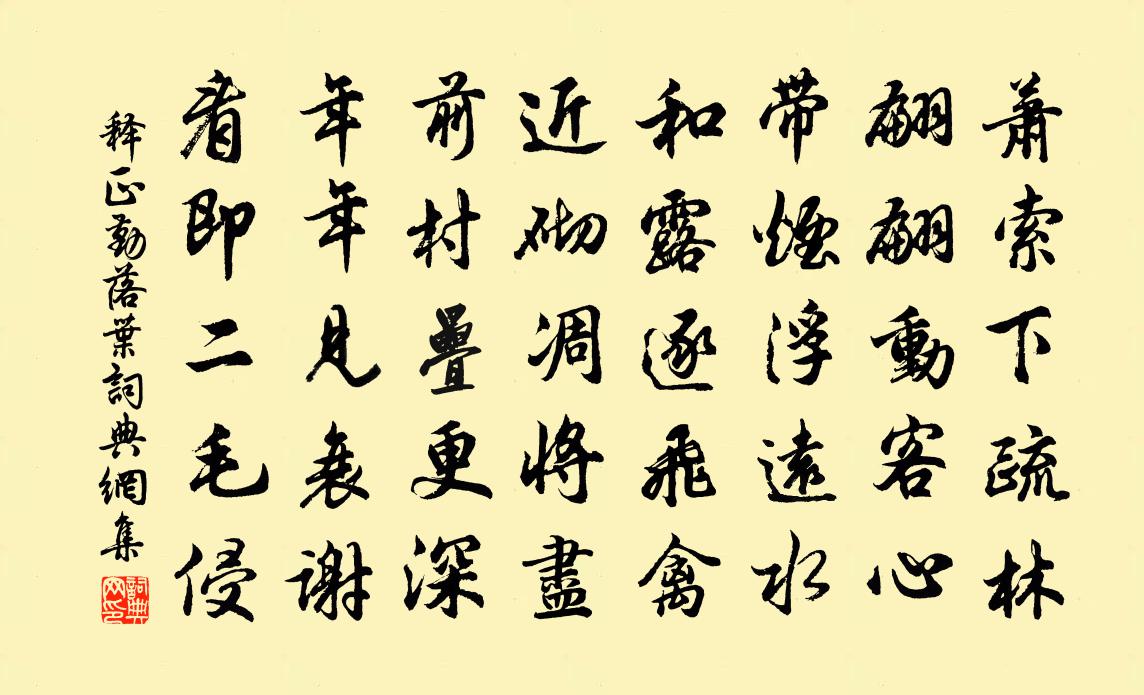 蕭索下疏林
翩翩動客心
帶煙浮遠水
和露逐飛禽
近砌凋將盡
前村疊更深
年年見衰謝
看即二毛侵
释正勤落葉詞典網集
詞典网印